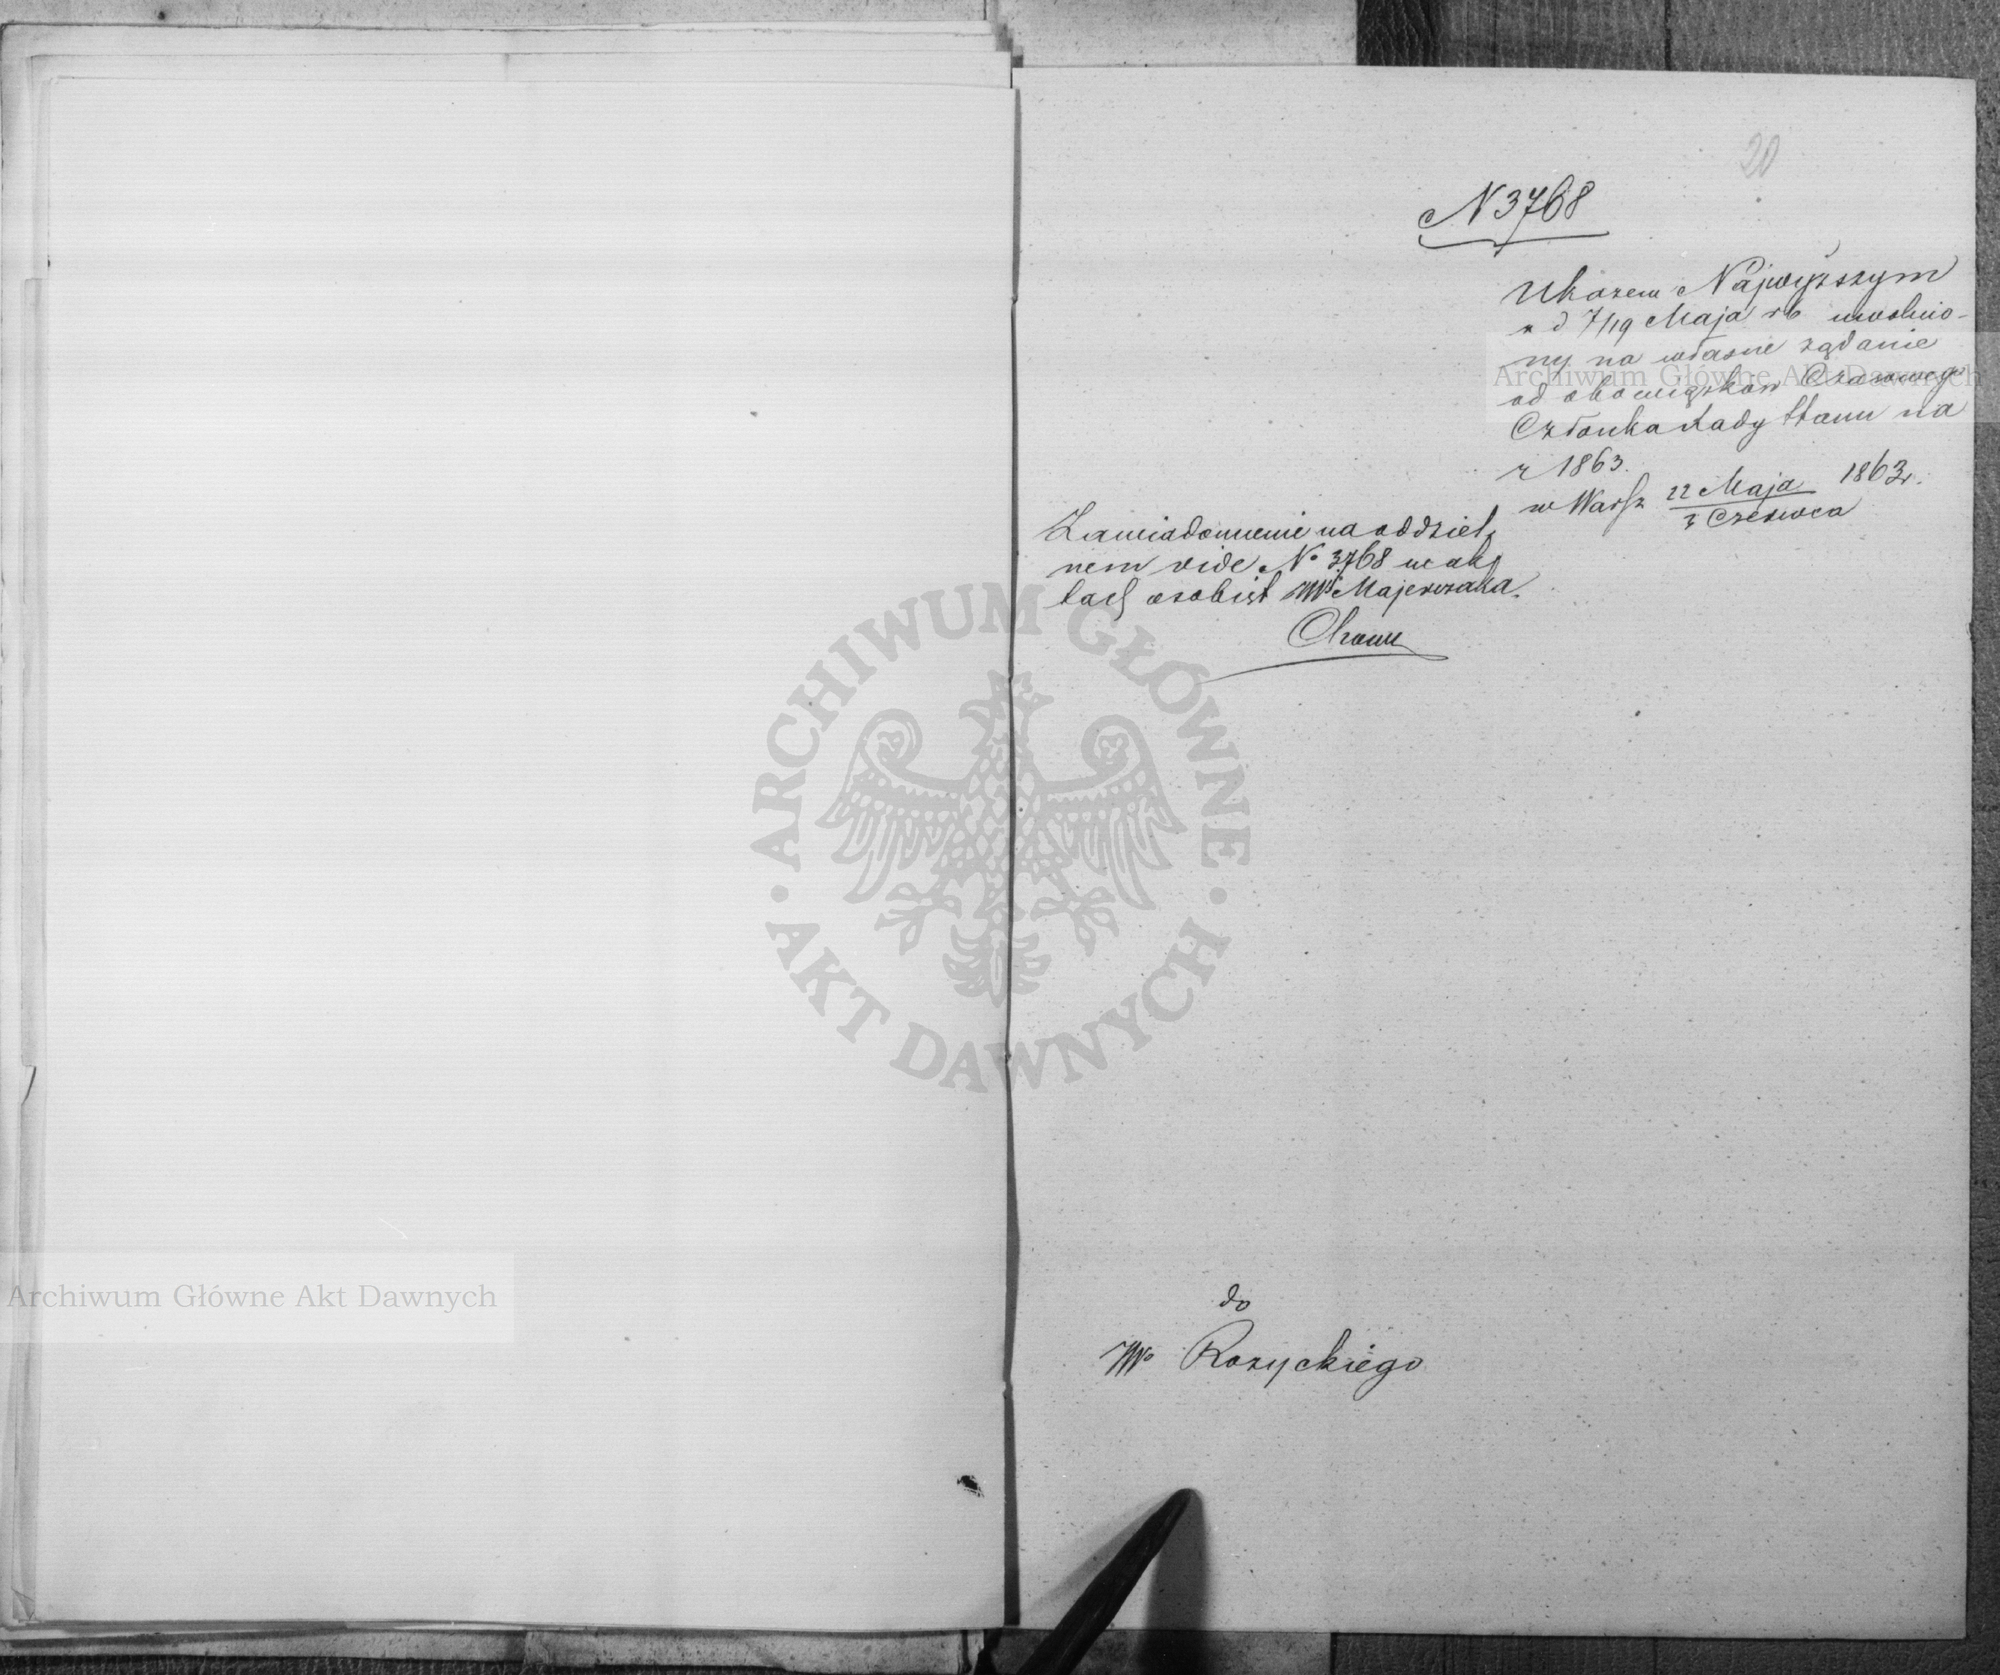 20
N 3768
Ukazem Najwyższym
z d 7/19 Maja rb uwolnio-
ny na własne żądanie
od obowiązków Czasowego
Członka Rady Stanu na
r 1863.
w Warsz 22 Maja / 3 Czerwca 1863 r.
Zawiadomienie na oddziel
nem vide No 3768 w ak
tach osobist JWo Majewskiego
do
JWo Rożyckiego
ARCHIWUM GŁÓWNE
AKT DAWNYCH
Archiwum Główne Akt Dawnych
Archiwum Główne Akt Dawnych